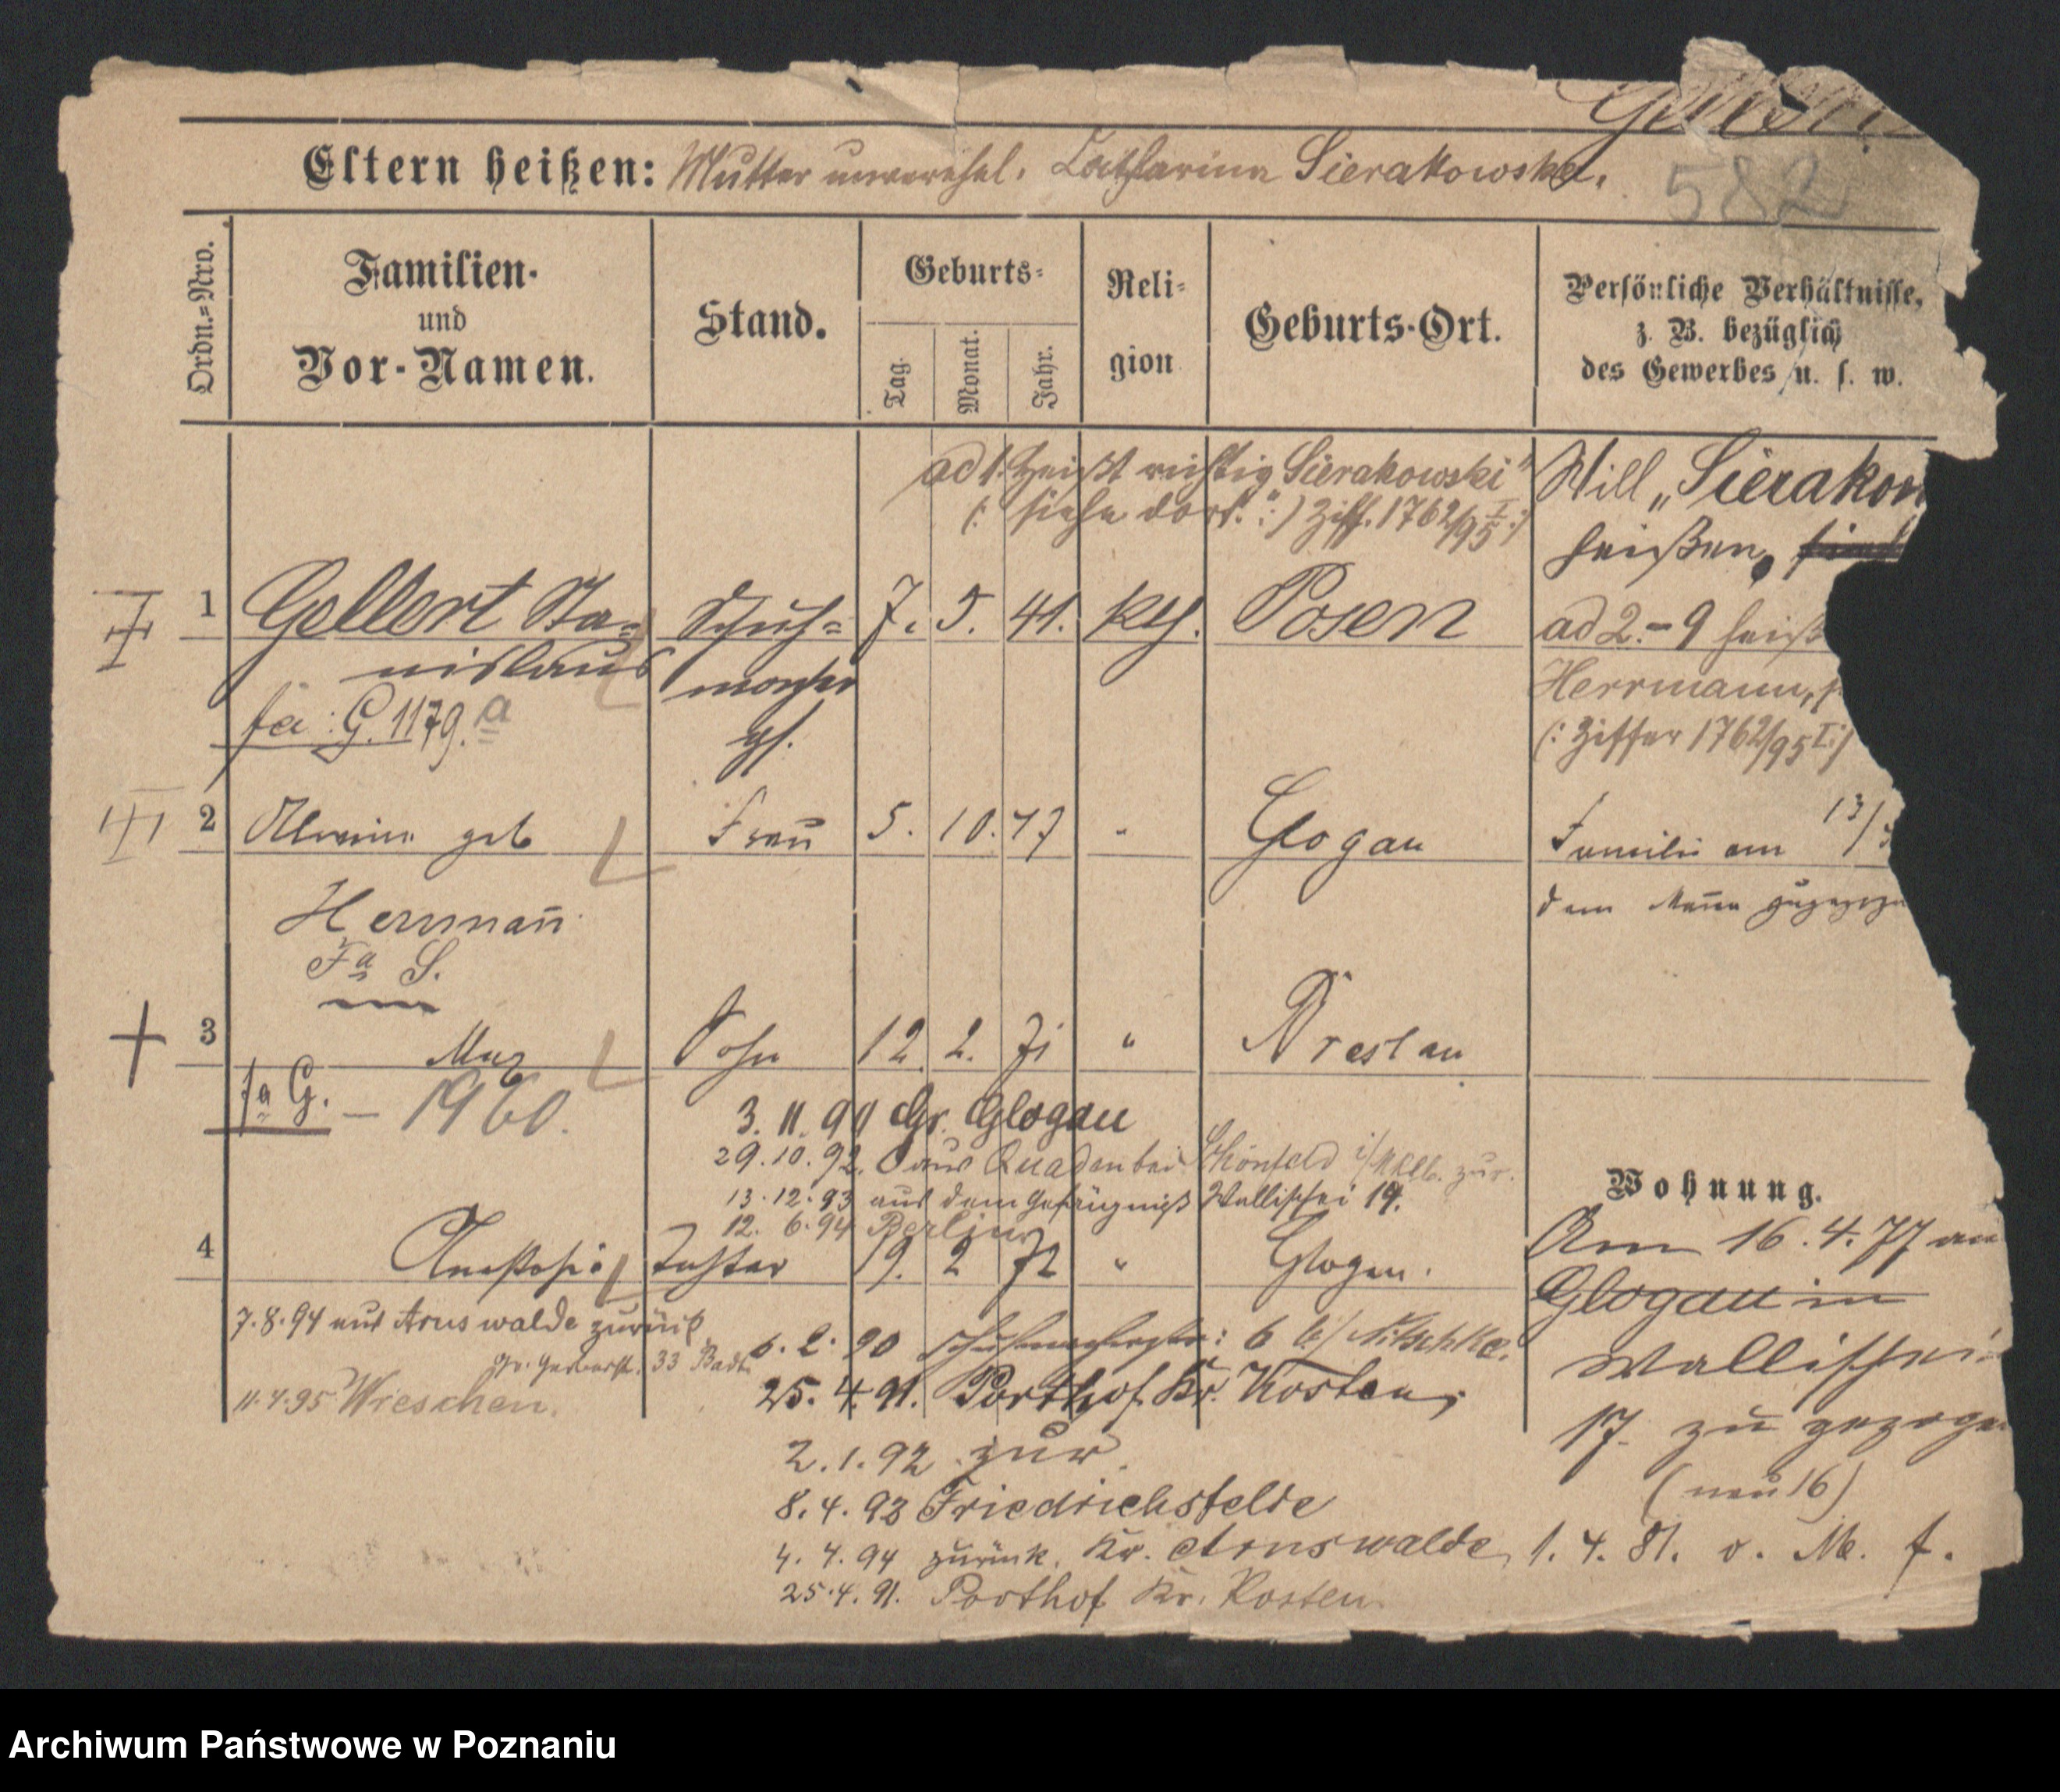 582
Eltern heißen: Mutter unverehel. Catharina Sierakowska.
Ordn.=Nro.
Familien-
und
Vor-Namen.
Stand.
Geburts-
Tag.
Monat.
Jahr.
Reli-
gion
Geburts-Ort.
Persönliche Verhältnisse,
z. B. bezüglich
des Gewerbes u. s. w.
ad 1 heißt richtig "Sierakowski"
(: siehe dort. :) Ziff. 1762/95 I.
Will „Sierakow
heißen,
1 Gellert Sta= Schuh= 7. 5. 41. kth. Posen
nislaus macher
fa: G. 1179.a
ad 2.-9 heiß
Herrmann,
(: Ziffer 1762/95 I :)
2 geb Frau 5. 10. 47 " Glogau
Herrmañ
Fa S.
Familie am 13/
dem
3 Max Sohn 12 2. 71 " Breslau
fa G. - 1960.
3. 11. 90 Gr. Glogau
29.10.92. aus Quaden bei Schönfeld zur.
13.12.93 aus dem Gefängniß Wallischei 19.
12. 6.94 Berlin
4 Anastasia Tochter 19. 2 72 " Glogau.
7.8.94 aus Arnswalde zurück
33
11.4.95 Wreschen.
6. 2. 90 6 b/ Nitschke.
25. 4. 91. Porthof Kr. Kosten,
2.1.92 zur.
8.4.93 Friedrichsfelde
4. 4.94 zurück. Kr. Arnswalde,
25.4.91. Porthof Kr. Kosten.
Wohnung.
Am 16.4.77 aus
Glogau in
Wallischei
17. zu gezogen
(neu 16)
1. 4. 81. v. M. f.
Archiwum Państwowe w Poznaniu